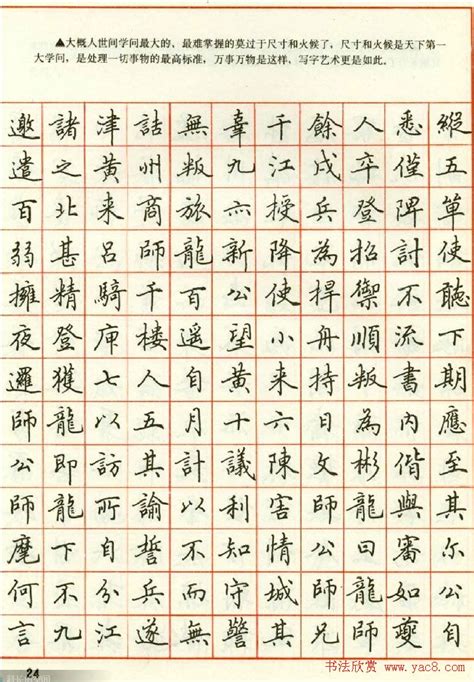 ▲大概人世间学问最大的、最难掌握的莫过于尺寸和火候了，尺寸和火候是天下第一
大学问，是处理一切事物的最高标准，万事万物是这样，写字艺术更是如此。
邀諸津詰無辜千餘人悉縱
遣之黄州叛九江戍卒僅五
百北來商旅亦授兵登陴單
弱甚呂師龍新降為招討使
擁精騎千百公使捍禦不聽
夜登庳樓遥望小舟順流下
邏獲七人自黄來持叛書期
師龍以五月十六日為内應
公即訪其計議陳文彬偕至
師龍所諭以利害師龍與其
麾下自誓不知情公曰審尔
何不分兵而守城師龍如公
言九江遂無警其兄師夔自
24
书法欣赏 www.yac8.com